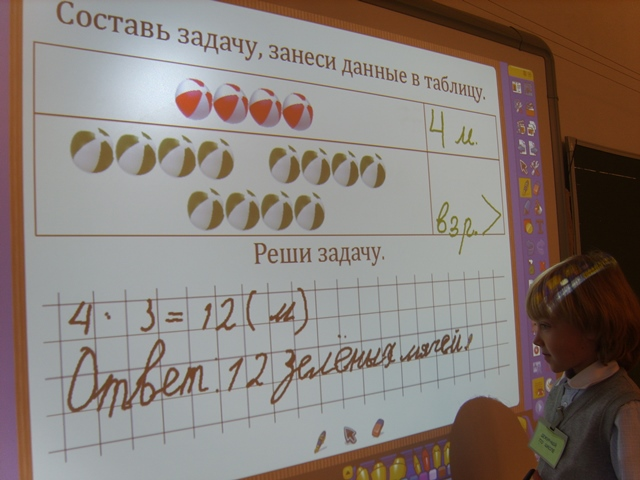 Составь задачу, занеси данные в таблицу.
4 м.
в 3 р. >
Реши задачу.
4 · 3 = 12 ( м )
Ответ: 12 зелёных мячей.